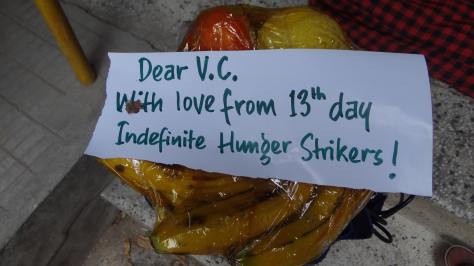 Dear V.C.
With love from 13th day
Indefinite Hunger Strikers!